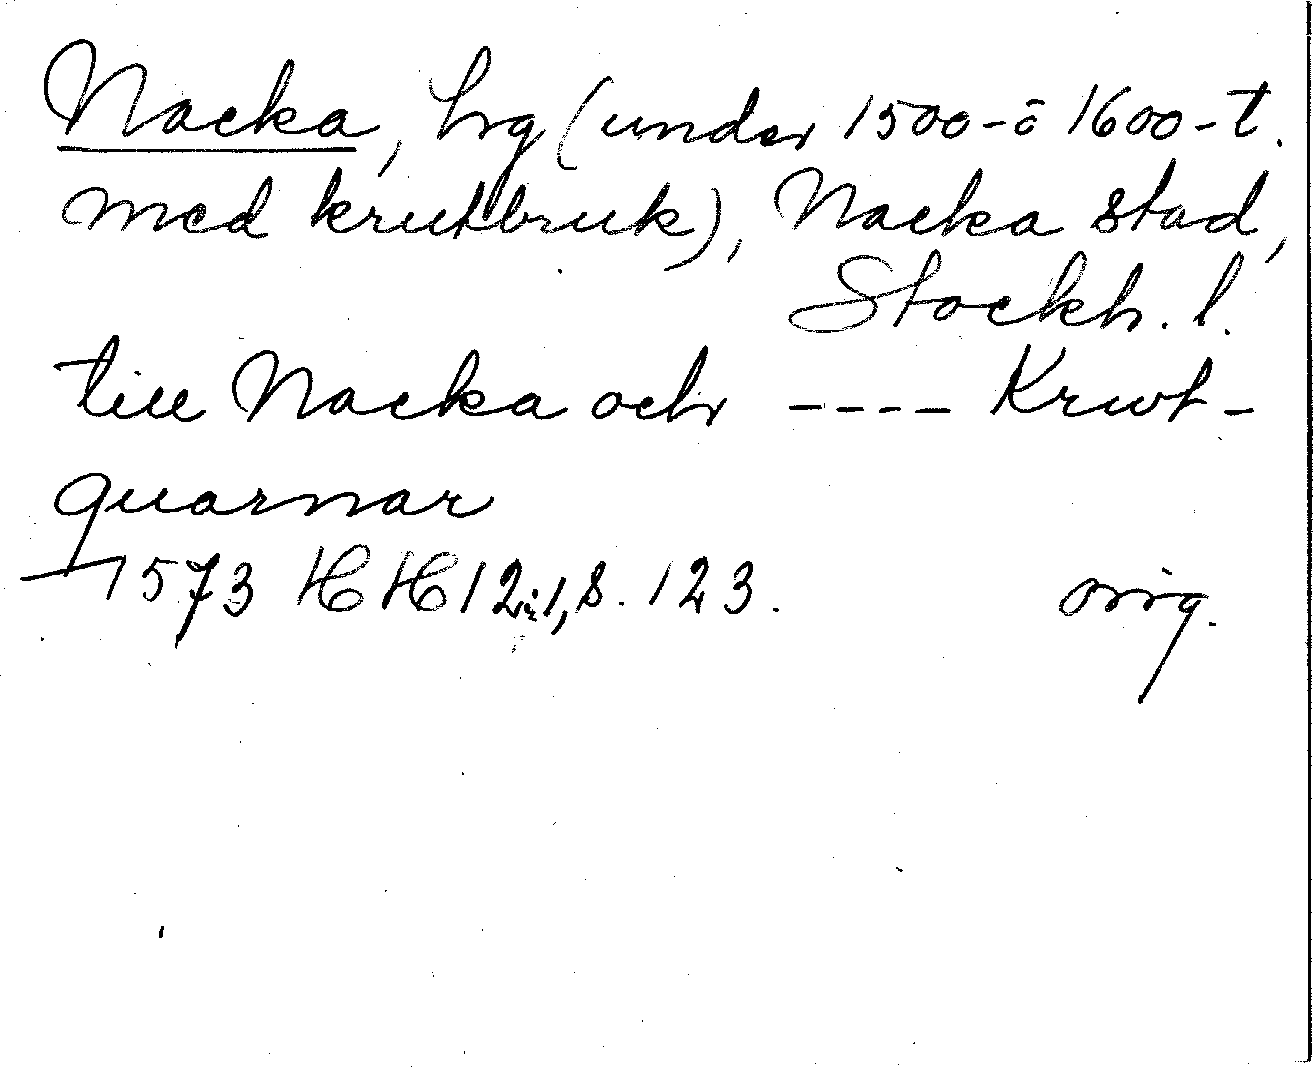 Nacka, hg (under 1500- ō 1600-t.
med krutbruk), Nacka stad,
Stockh. l.
till Nacka och ---- Krwt-
quarnar
1573 HH 12:1, s. 123. orig.